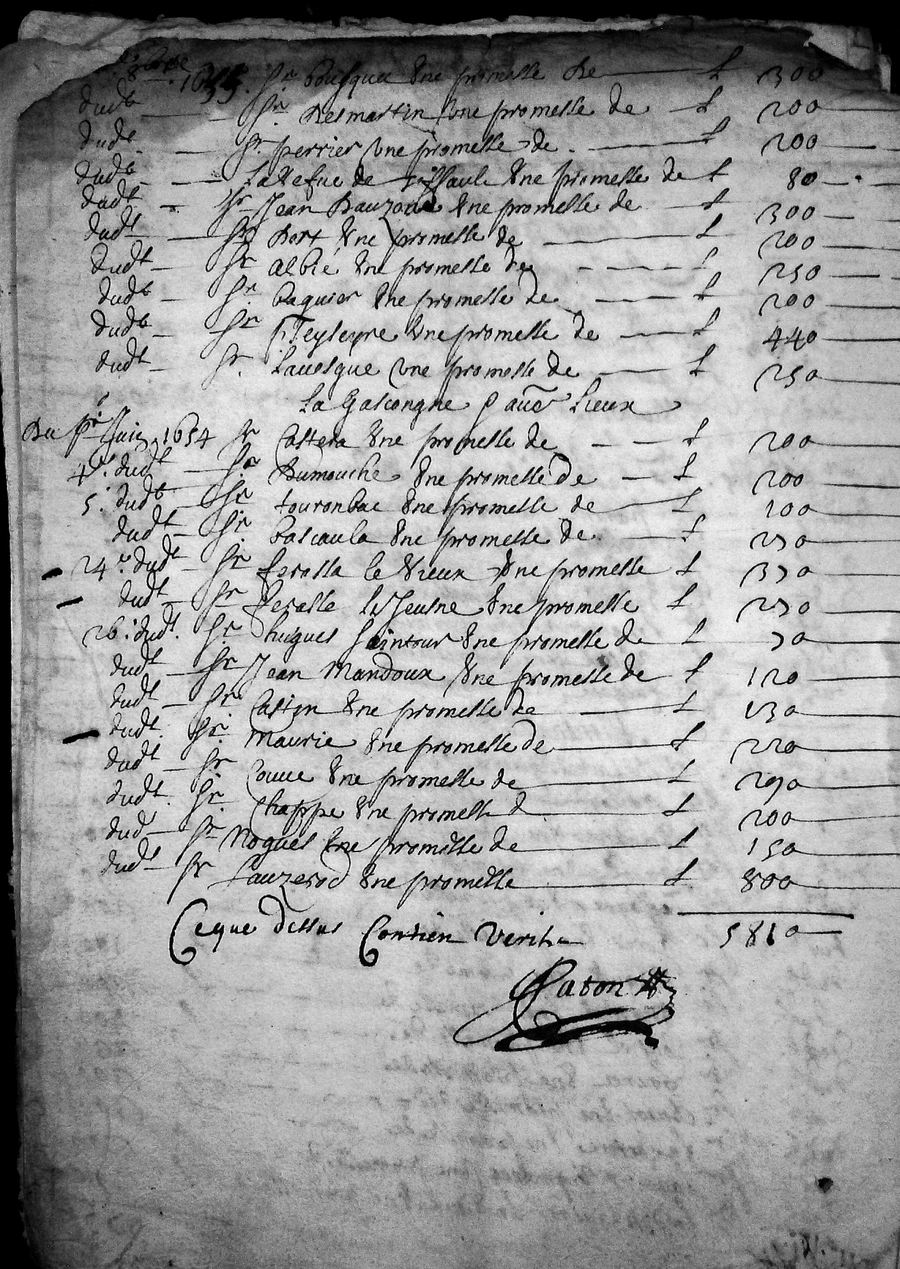 1655. Sr Bousque Une promesse De £ 300
dudt Sr Desmartin Une promesse de £ 200
dudt Sr perrier Une promesse de £ 200
dudt La Vefue de Une promesse de £ 80
dudt Sr Jean Dauzon Une promesse de £ 300
dudt Sr Dort Une promesse de £ 200
dudt Sr Albié Une promesse de £ 250
dudt Sr baquier Une promesse de £ 200
dudt Sr Teyseyre Une promesse de £ 440
dudt Sr Lauesque Une promesse de £ 250
La Gascongne & autre Lieux
Du pr Juin 1654 Sr Castera Une promesse de £ 200
4e. dudt Sr Dumouche Une promesse de £ 200
5. dudt Sr touronbae Une promesse de £ 100
dudt Sr bascaula Une promesse de £ 250
24e. dudt Sr ferasse le Vieux Une promesse £ 350
dudt Sr ferasse le Jeusne Une promesse £ 250
26. dudt. Sr hugues Saintour Une promesse de £ 50
dudt Sr Jean Mandoux Une promesse de £ 120
dudt Sr Castin Une promesse de £ 150
dudt. Sr. Maurie Une promesse de £ 220
dudt Sr Couue Une promesse de £ 290
dudt. Sr. Chappe Une promesse d £ 200
dud Sr Nogues Une promesse de £ 150
dudt Sr Lauzerod Une promesse £ 800
Ce que dessus Contien Verite 5810
Paton